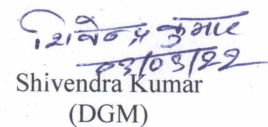 शिवेन्द्र कुमार
03/03/22
Shivendra Kumar
(DGM)